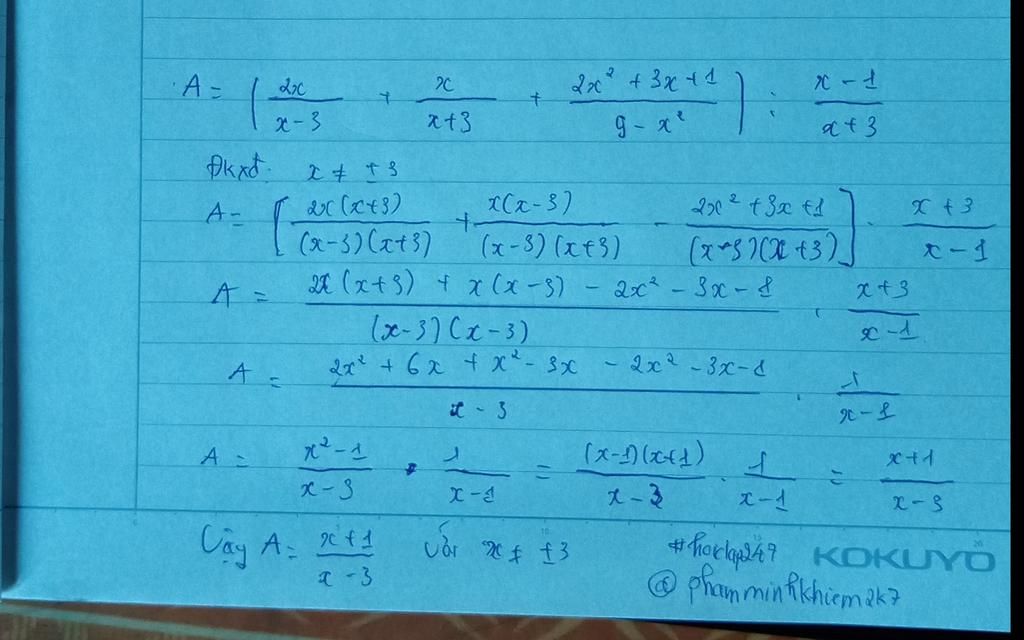 A = [ 2x/(x-3) + x/(x+3) + (2x² + 3x + 1)/(9 - x²) ] : (x - 1)/(x + 3)
Đkxđ: x ≠ ±3
A = [ 2x(x+3)/((x-3)(x+3)) + x(x-3)/((x-3)(x+3)) - (2x² + 3x + 1)/((x-3)(x+3)) ] . (x+3)/(x-1)
A = (2x(x+3) + x(x-3) - 2x² - 3x - 1)/((x-3)(x-3)) . (x+3)/(x-1)
A = (2x² + 6x + x² - 3x - 2x² - 3x - 1)/(x-3) . 1/(x-1)
A = (x² - 1)/(x-3) . 1/(x-1) = (x-1)(x+1)/(x-3) . 1/(x-1) = (x+1)/(x-3)
Vậy A = (x+1)/(x-3) với x ≠ ±3
#hoctap247
@phamminhkhiem2k7
KOKUYO